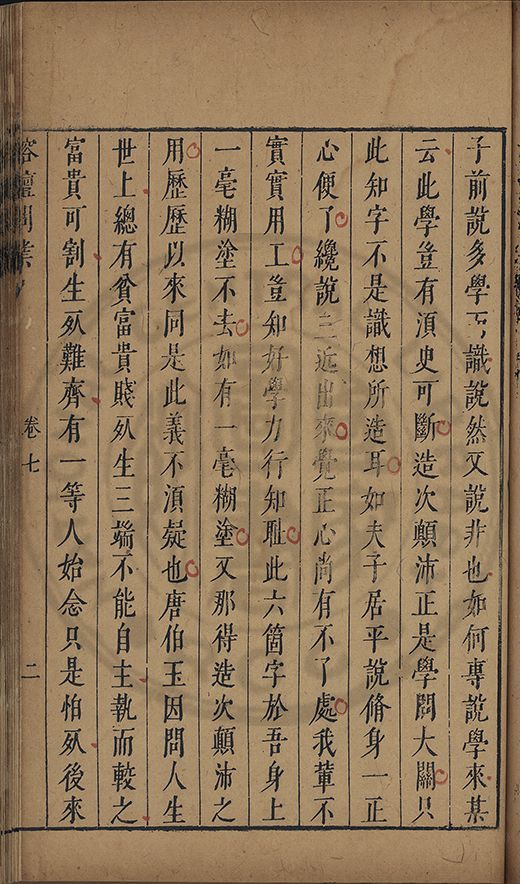 子前說多學而識說然又說非也如何專說學來某
云此學豈有湏史可斷造次顛沛正是學問大關只
此知字不是識想所造耳如夫子居平說脩身一正
心便了纔說三近出來覺正心尚有不了處我輩不
實實用工豈知好學力行知耻此六箇字於吾身上
一毫糊塗不去如有一毫糊塗又那得造次顛沛之
用歷歷以來同是此義不湏疑也唐伯玉因問人生
世上總有貧富貴賤死生三端不能自主執而較之
富貴可割生死難齊有一等人始念只是怕死後來
榕壇問業 卷七 二